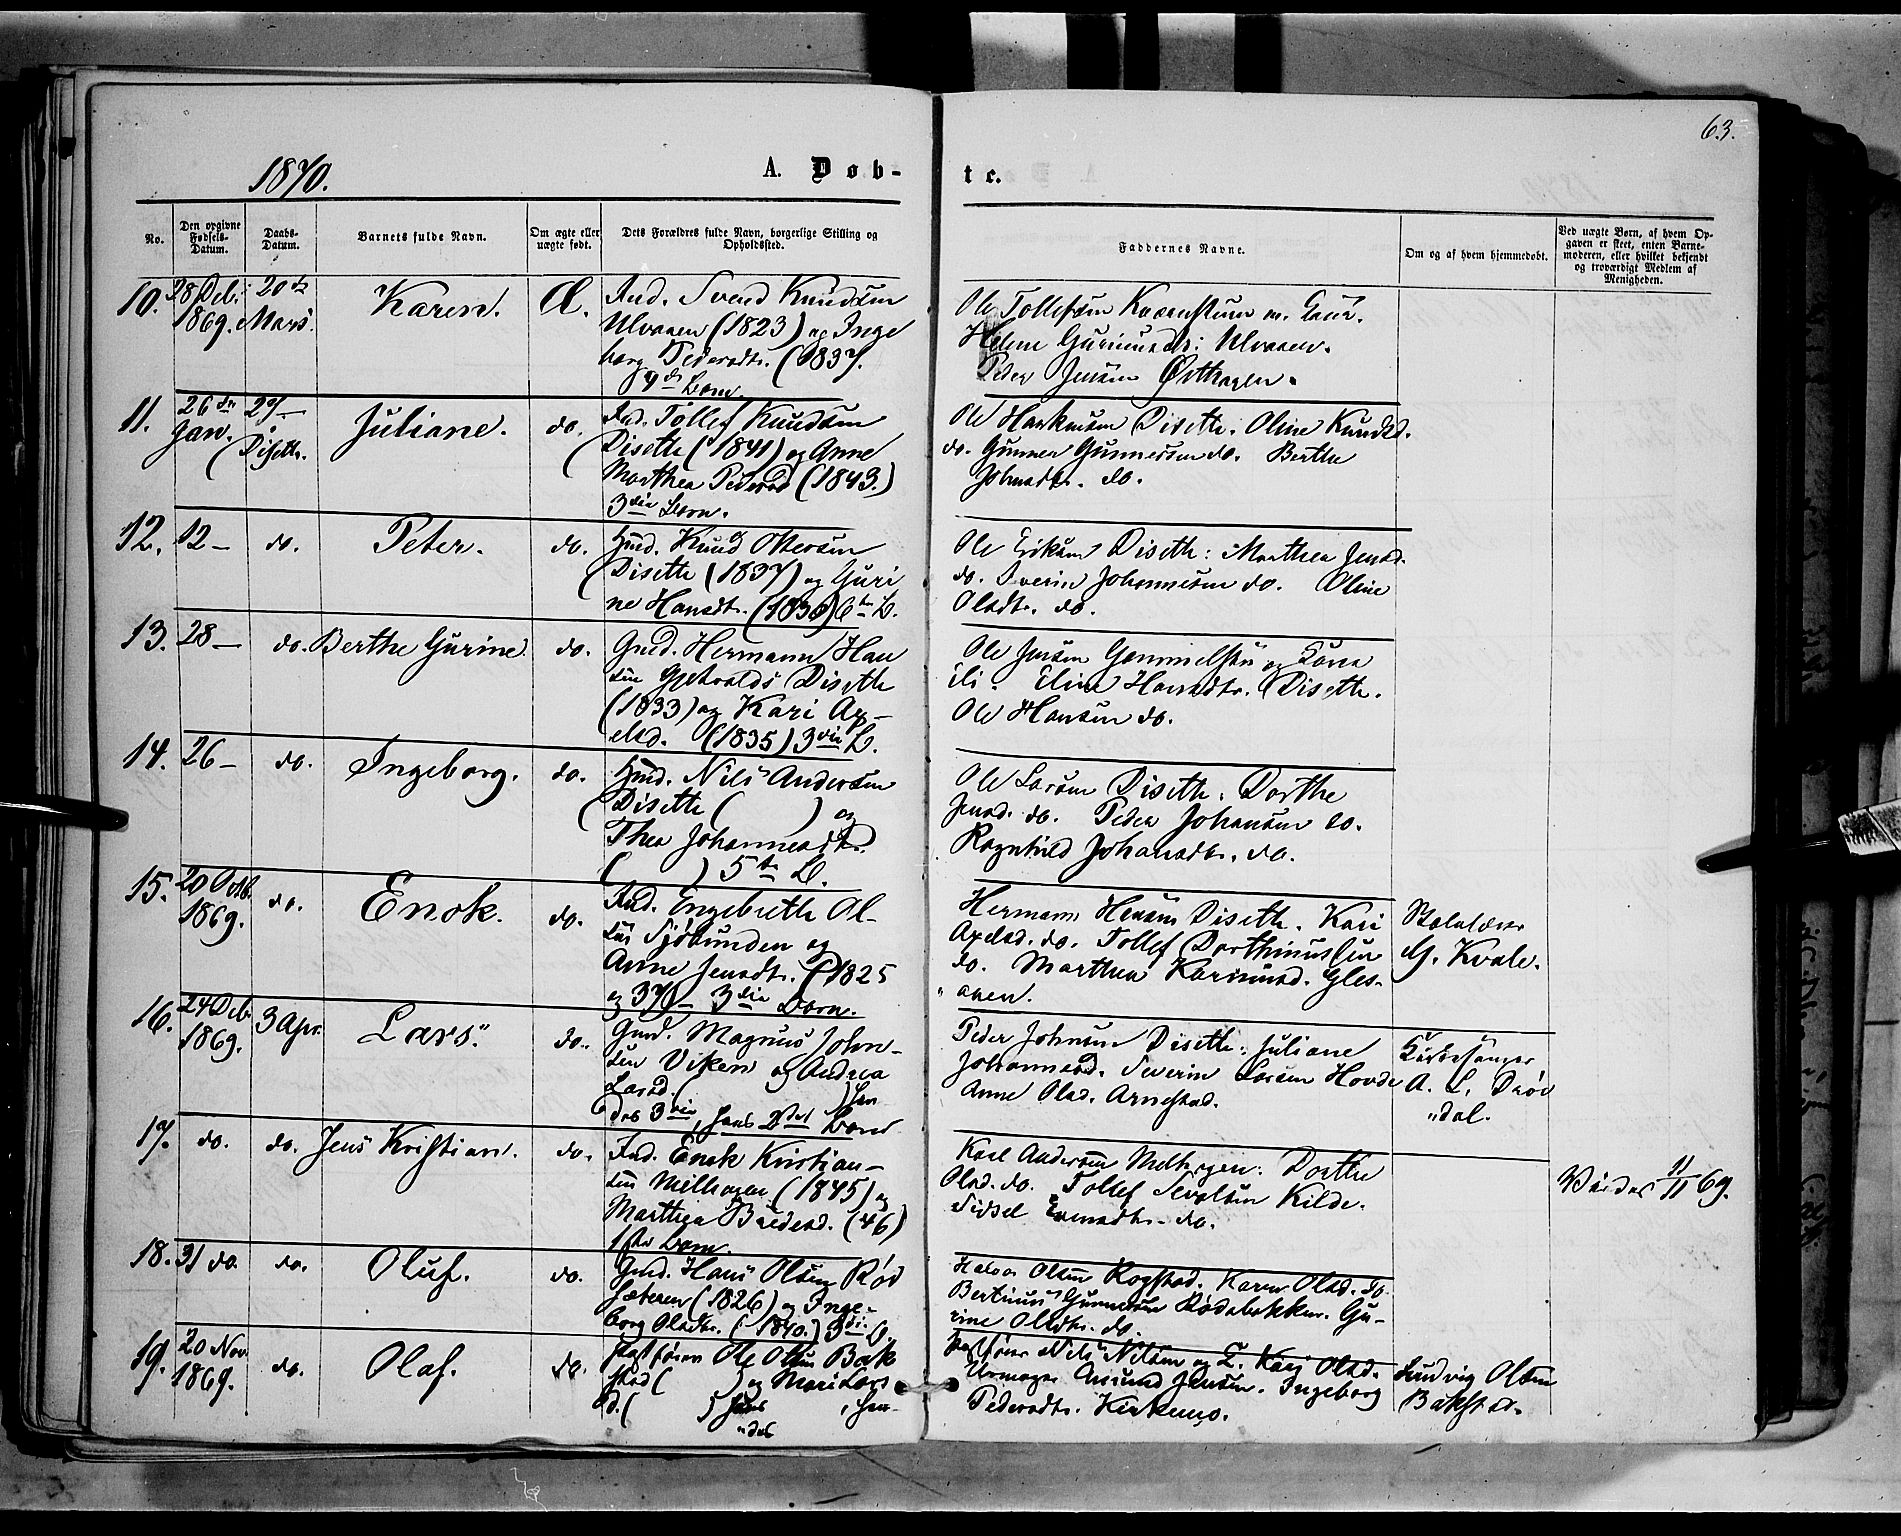 63.
1870.
A. Døb-
te.
No.
Den opgivne Fødsels-Datum.
Daabs-Datum.
Barnets fulde Navn.
Om ægte eller uægte født.
Dets Forældres fulde Navn, borgerlige Stilling og Opholdssted.
Faddernes Navne.
Om og af hvem hjemmedøbt.
Ved uægte Børn, af hvem Opgaven er skeet, enten Barnemoderen, eller hvilket bekjendt og troværdigt Medlem af Menigheden.
10. 28 Deb. 20de Karen. Æ. Ind. Svend Knudsen
1869. Mars. Ulvaaen (1823) og Inge
borg Pedersdtr. (1837.
4de Barn.
Ole Tollefsen Kværnstuen
Helene Ulvaaen.
Peder Jensen Østhagen.
11. 26de 27 Juliane. do. Ind. Tollef Knudsen
Jan. Disetth. Disetth (1841) og Anne
Marthea Pedersd (1843.)
3die Barn.
Ole Disetth. Oline Knudsd.
do. Gunner Gunnersen do. Berthe
Johnsdtr. do.
12. 12 – do. Peter. do. Gmd. Knud Ottersen
Disetth (1837) og Guri
ne Hansdtr. 6te B.
Ole Eriksen Disetth: Marthea Jensd.
do. Iverin Johannesen do. Oline
Olsdtr. do.
13. 28 – do. Berthe Gurine. do. Gmd. Hermann Han
sen Disetth
(1833) og Kari Ax-
elsd. (1835) 3die B.
Ole Jensen
Eline Hansdtr. Disetth.
Ole Hansen do.
14. 26 – do. Ingeborg. do. Gmd. Nils Andersen
Disetth ( ) og
Thea Johannesdtr.
( ) 5te B.
Ole Larsen Disetth. Dorthe
Jensd. do. Peder Johansen do.
Ragnhild Johansdtr. do.
15. 20 Octb. do. Enok. do. Ind. Engebreth Ol-
1869. sen Sjölunden og
Anne Jensdtr. (1825
og 37) – 3die Barn.
Hermann Hansen Disetth. Kari
Axelsd. do. Tollef
do. Marthea
aaen.
Skolelærer
G. Kvale.
16. 24 Deb. 3 Apr. Lars. do. Gmd. Magnus John-
1869. sen Viken og Andrea
Larsd. ( ) Hen
des 3die, hans 2det Barn
Peder Johnsen Disetth. Juliane
Johannesd. Severin Larsen Hovde
Anne Olsd. Arnestad.
Kirkesanger
A. L. Brøv
dal.
17. do. do. Jens Kristian. do. Ind. Enok Kristian-
sen Melhagen (1845) og
Marthea (46)
1ste Barn.
Karl Andersen Melhagen: Dorthe
Olsd. do. Tollef Kilde.
Sidsel do.
11/11 69.
18. 31 do. do. Oluf. do. Gmd. Hans Olsen Rød
sæteren (1826) og Inge-
borg Olsdtr. (1840.) 3die B.
Olsen Rogstad. Karen Olsd. do.
Bertinus Gunnersen Rødsbakken. Gu-
rine Olsdtr. do.
19. 20 Nov. do. Olaf. do. Postfører Ole Olsen Bak
1869. stad ( ) og Mari Lars
d. ( ) hans , hen-
des
Nils Nilsen og Kari Olsd.
Urmager Amund Jensen. Ingeborg
Pedersdtr. Kirkemo.
Ludvig Olsen
Bakstad.